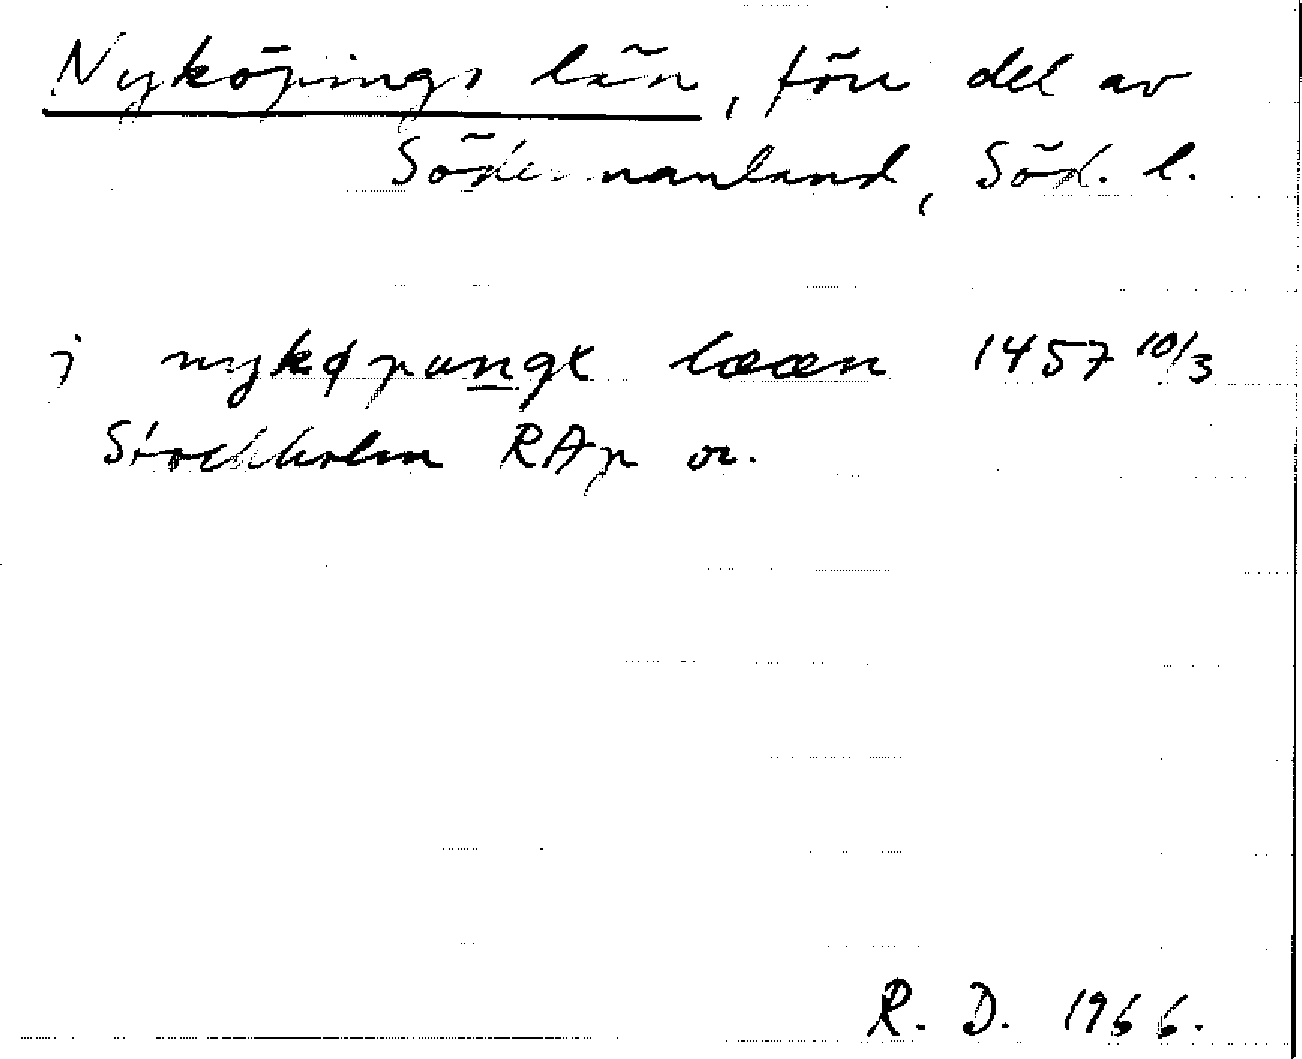 Nyköpings län, förr del av
Södermanland, Söd. l.
j nykøpungx lææn 1457 10/3
Stockholm RAp or.
R. D. 1966.